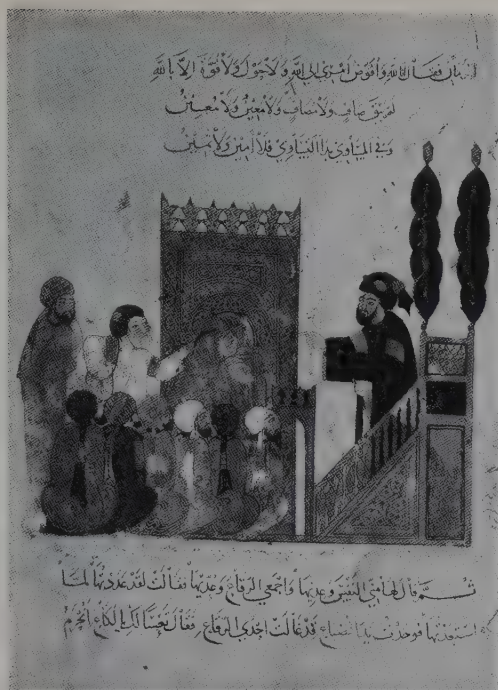 فقال انا لله وأفوض أمري إلى الله ولا حول ولا قوة الا بالله
لم يبق صاف ولا مصاف ولا معين ولا معين
وفي المساوي بدا التساوي فلا أمين ولا ثمين
ثم قال لها مني النفس وعديها واجمعي الرقاع وعديها فقالت لقد عددتها لما
استعدتها فوجدت يد الضياع قد غالت احدى الرقاع فقال تعسا لك يا لكاع انحرم